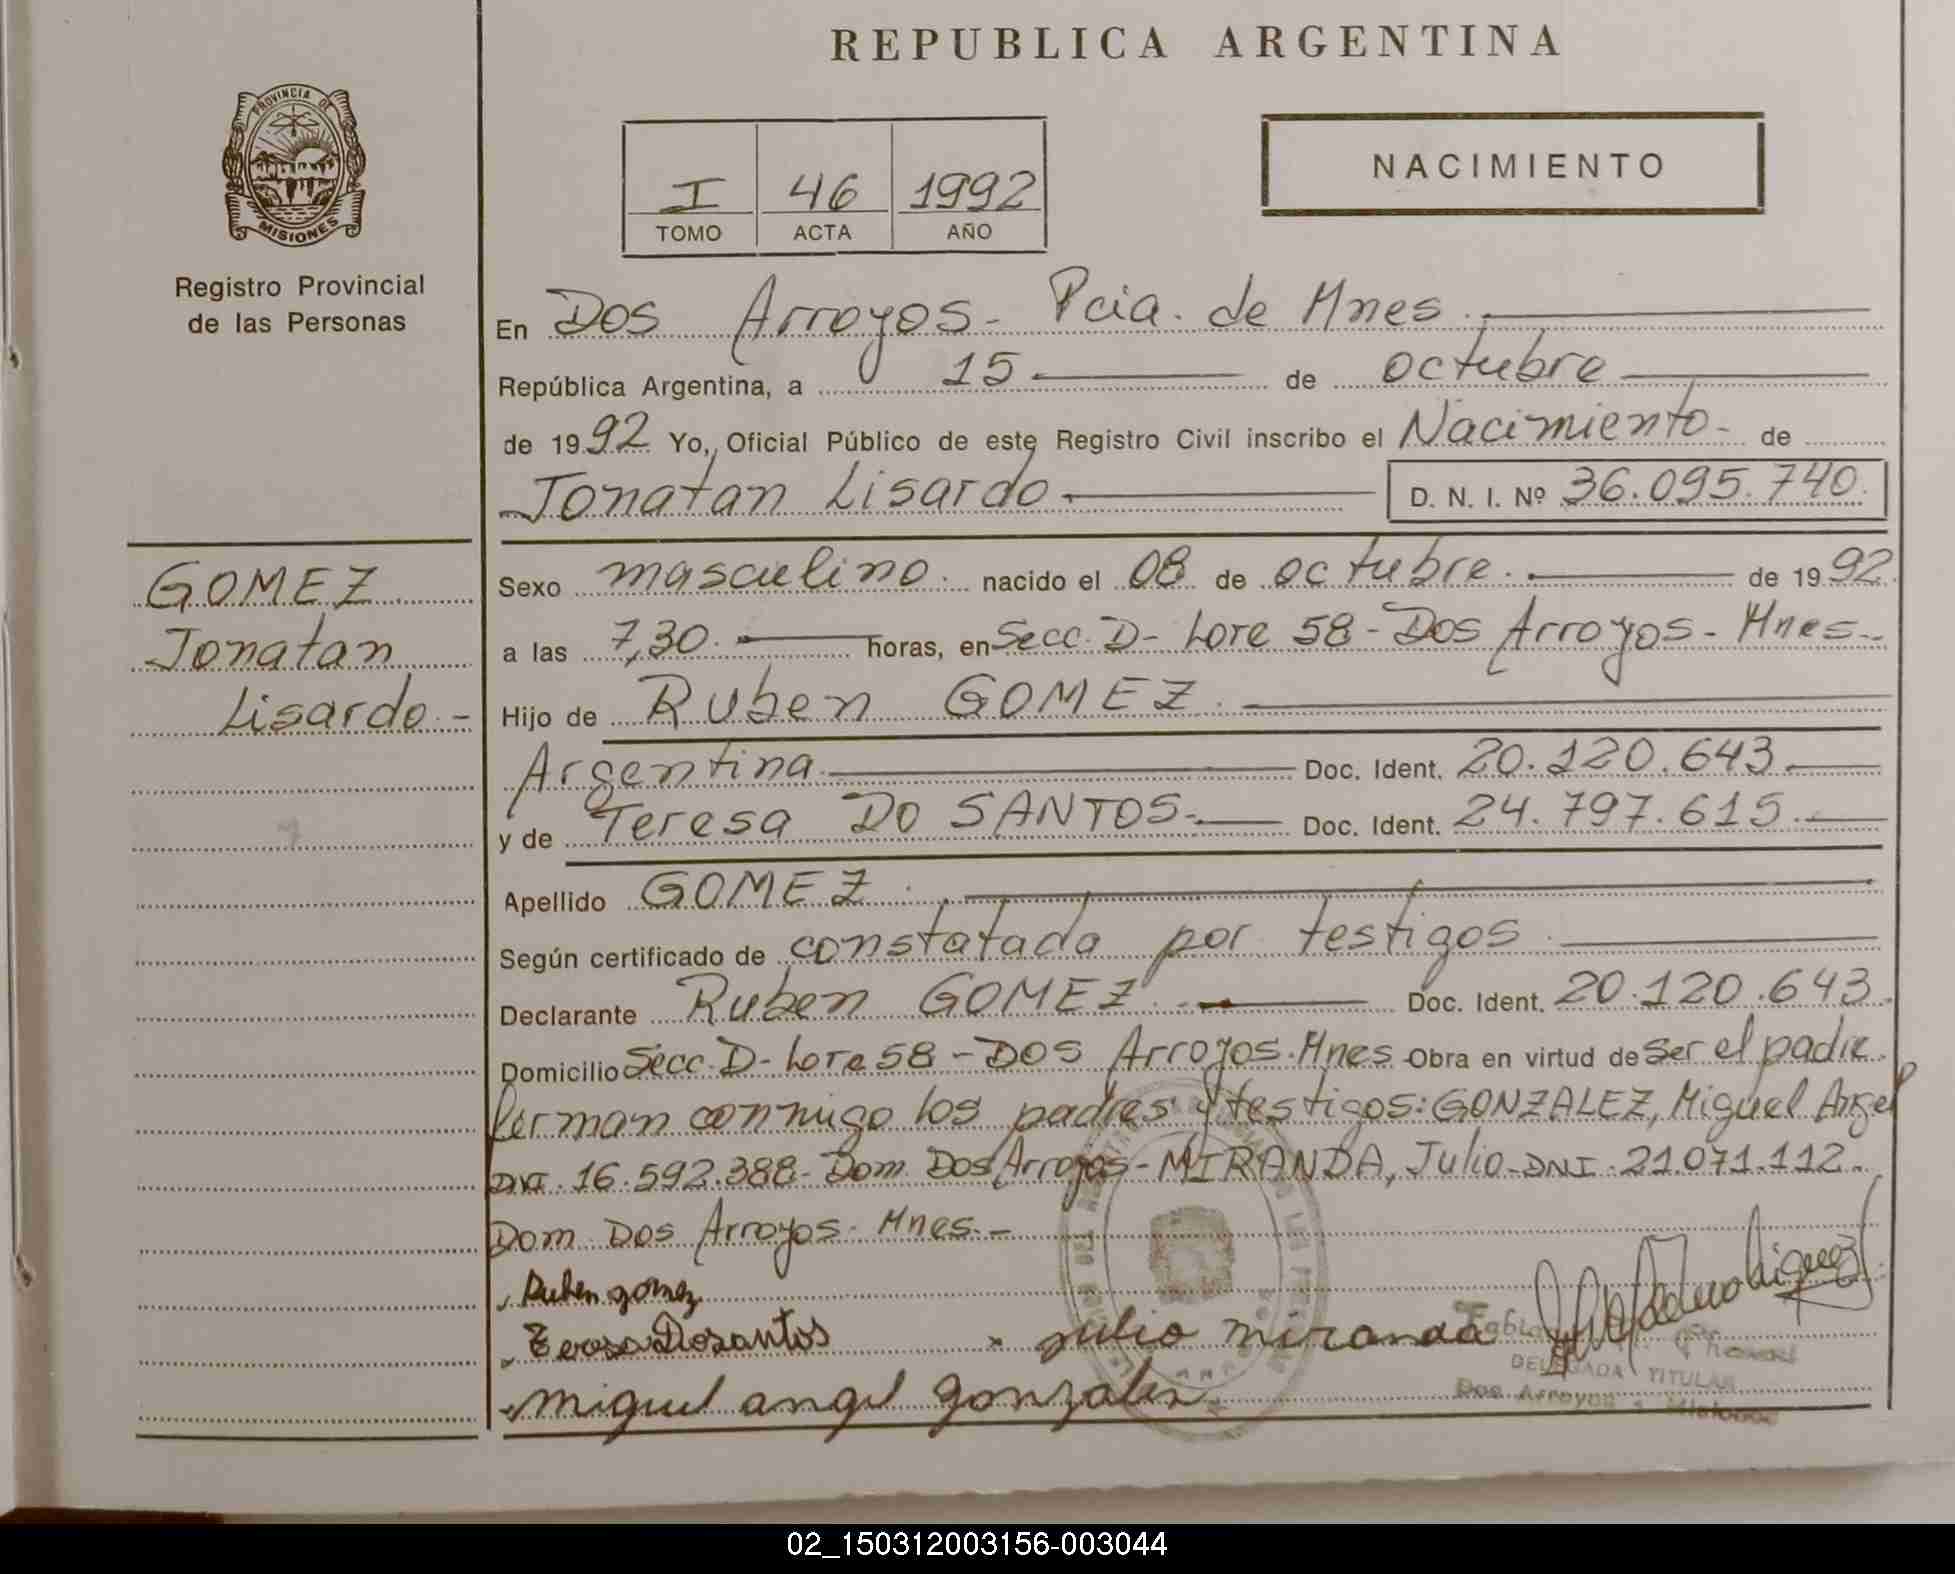 REPUBLICA ARGENTINA
PROVINCIA DE
MISIONES
Registro Provincial
de las Personas
I 46 1992
TOMO ACTA AÑO
NACIMIENTO
En Dos Arroyos - Pcia. de Mnes.
República Argentina, a 15 de octubre
de 1992 Yo, Oficial Público de este Registro Civil inscribo el Nacimiento - de
Jonatan Lisardo D. N. I. Nº 36.095.740.
GOMEZ
Jonatan
Lisardo. -
Sexo masculino. nacido el 08 de octubre. de 1992.
a las 7,30. horas, en Secc. D - Lote 58 - Dos Arroyos - Mnes.-
Hijo de Ruben GOMEZ.
Argentina Doc. Ident. 20.120.643.
y de Teresa DO SANTOS. Doc. Ident. 24.797.615.
Apellido GOMEZ.
Según certificado de constatada por testigos
Declarante Ruben GOMEZ. Doc. Ident. 20.120.643.
Domicilio Secc. D - Lote 58 - Dos Arroyos. Mnes. Obra en virtud de ser el padre.
firman conmigo los padres y testigos: GONZALEZ, Miguel Angel
DNI. 16.592.388 - Dom. Dos Arroyos - MIRANDA, Julio - DNI. 21.071.112.
Dom. Dos Arroyos. Mnes. -
Ruben gomez
Teresa Dosantos
julio miranda
miguel angel gonzalez
DELEGADA TITULAR
Dos Arroyos - Misiones
02_150312003156-003044